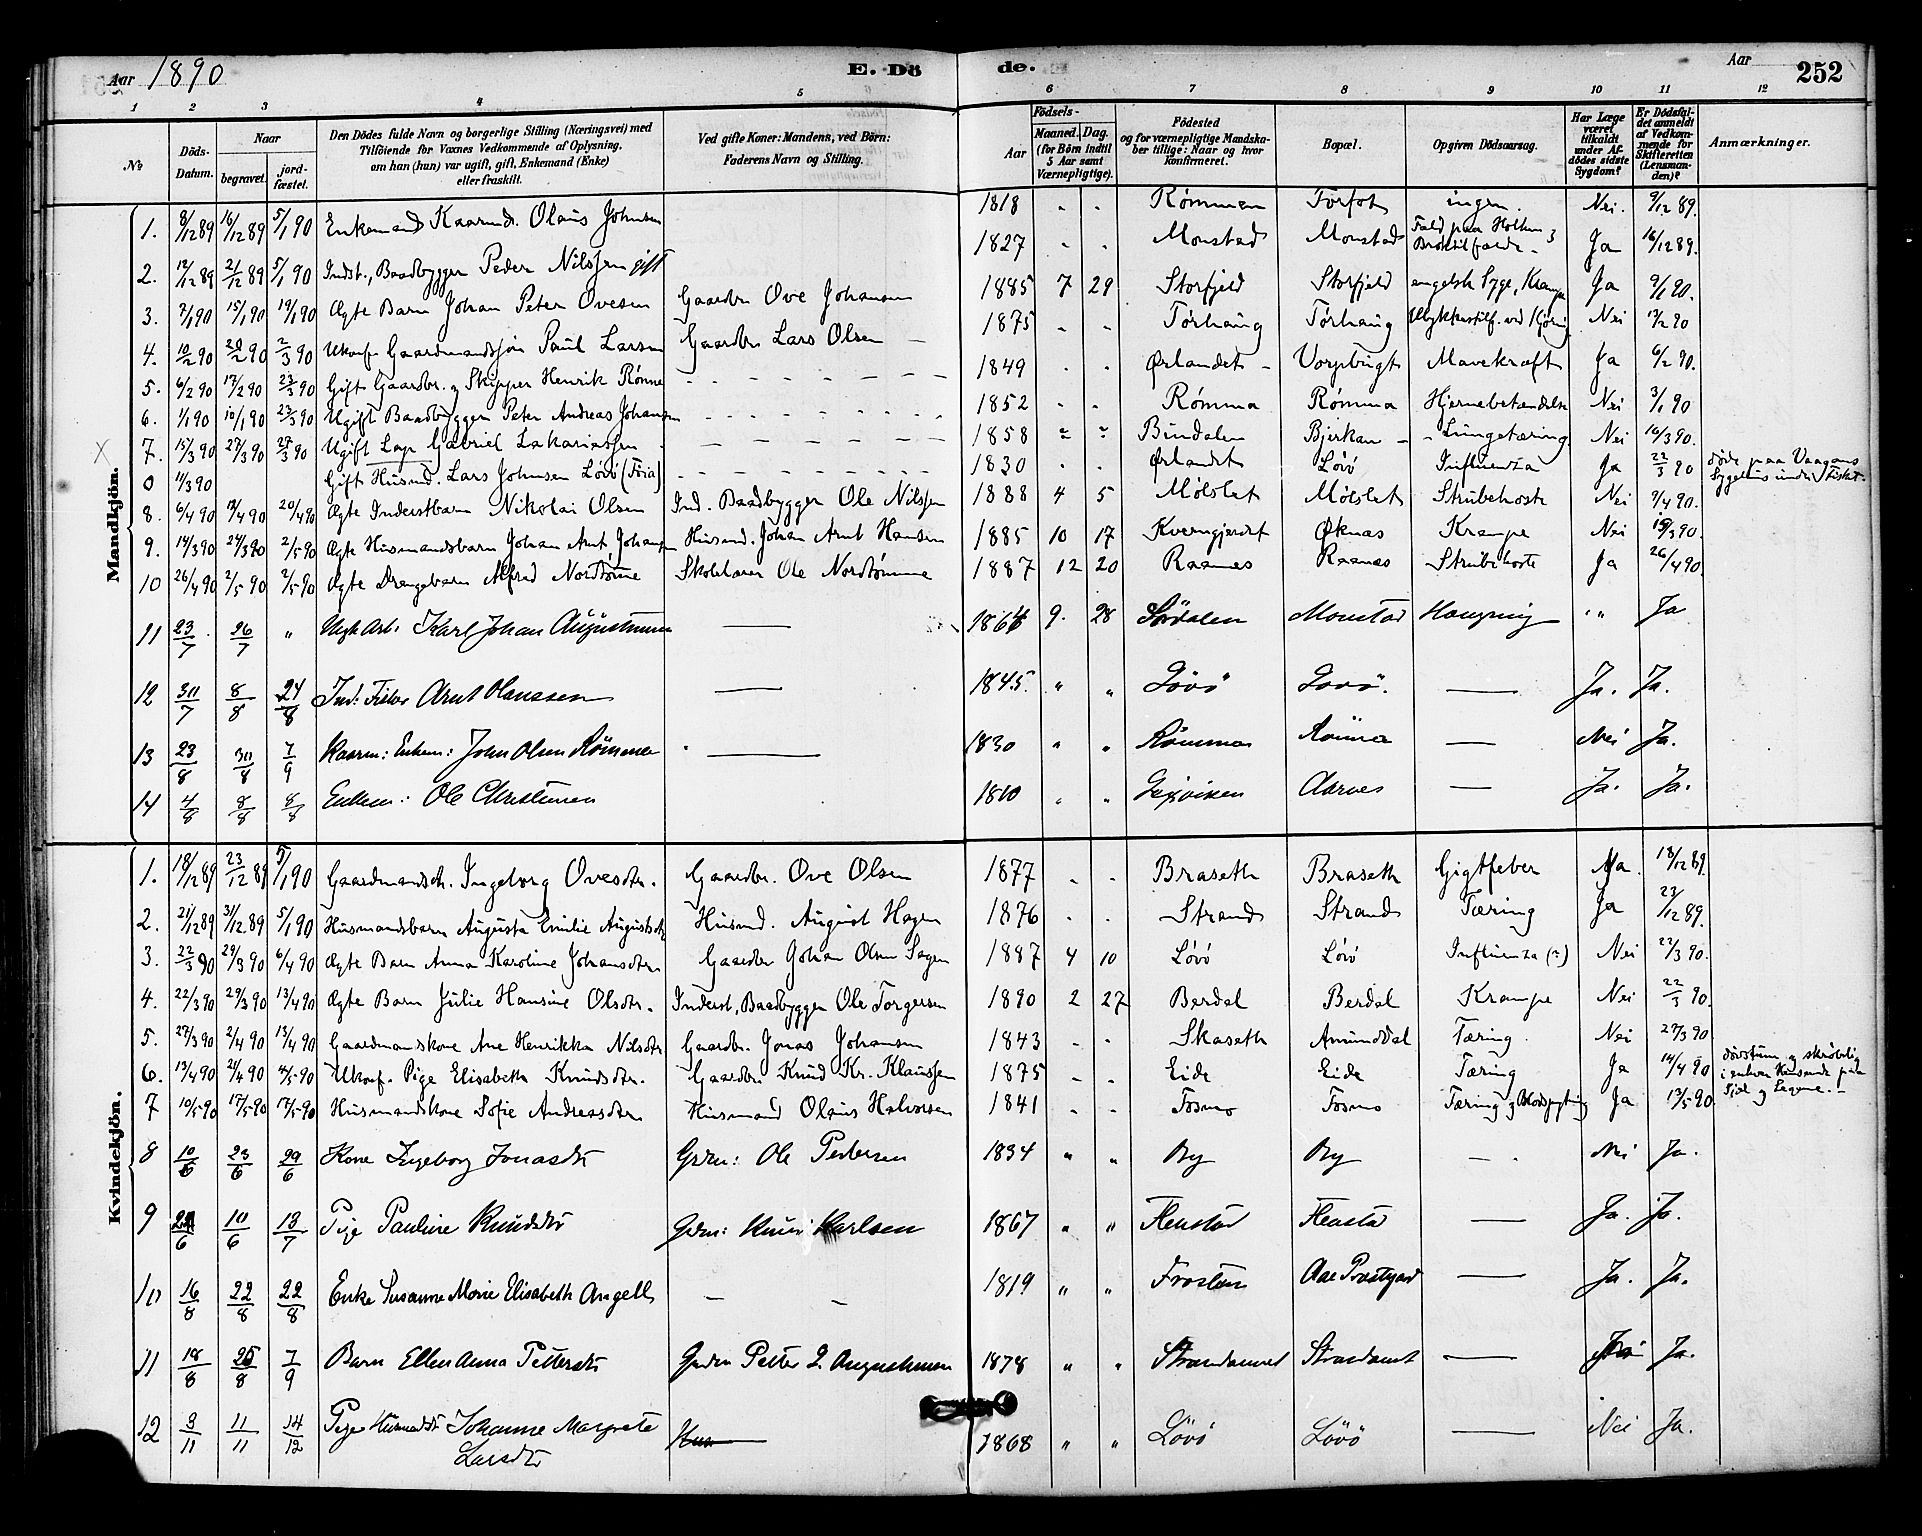 Aar 1890
E. Dö
de.
Aar
252
1 2 3 4 5 6 7 8 9 10 11 12
№
Döds-Datum.
Naar
begravet.
jord-fæstet.
Den Dödes fulde Navn og borgerlige Stilling (Næringsvei) med Tilföiende for Voxnes Vedkommende af Oplysning, om han (hun) var ugift, gift, Enkemand (Enke) eller fraskilt.
Ved gifte Koner: Mandens, ved Börn: Faderens Navn og Stilling.
Födsels-
Aar
Maaned. Dag.
(for Börn indtil 5 Aar samt Værnepligtige).
Födested og for værnepligtige Mandskaber tillige: Naar og hvor konfirmeret.
Bopæl.
Opgiven Dödsaarsag.
Har Læge været tilkaldt under Afdödes sidste Sygdom?
Er Dödsfaldet anmeldt af Vedkommende for Skifteretten (Lensmanden)?
Anmærkninger.
Mandkjön.
1. 8/12 89 16/12 89 5/1 90 Enkemand Kaarmd. Olaus Johnsen 1818 - - Rømmen Forfot ingen. Nei. 9/12 89.
2. 12/12 89 21/12 89 5/1 90 Indst., Baadbygger Peder Nilssen gift 1827 - - Monstad Monstad Fald paa Holken Ja 16/12 89.
3. 2/1 90 15/1 90 19/1 90 Ægte Barn Johan Peter Ovesen Gaardbr Ove Johansen 1885 7 29 Storfjeld Storfjeld engelsk Syge, Krampe Ja 9/1 90.
4. 10/2 90 20/2 90 2/3 90 Ukonf. Gaardmandssøn Paul Larsen Gaardbr Lars Olsen 1875 - - Tørhaug Tørhaug Ulykkestilf. ved Kjöring Nei 17/2 90
5. 6/2 90 17/2 90 23/3 90 Gift Gaardbr. og Skipper Henrik Rønne 1849 - - Ørlandet Mavekræft Ja 6/2 90.
6. 1/1 90 10/1 90 23/3 90 Ugift Baadbygger Peter Andreas Johansen 1852 - - Rømma Rømma Hjernebetændelse Nei 3/1 90
X 7. 15/3 90 27/3 90 27/3 90 Ugift Lap Gabriel Zakariassen 1858 Bindalen Bjerkan Lungetæring Nei 16/3 90.
0 11/3 90 Gift Husmd. Lars Johnsen Lövö (Foria) 1830 - - Ørlandet Lövö Influenza Ja 22/3 90 døde paa Vaagans Sygehus under Fisket.
8. 6/4 90 13/4 90 20/4 90 Ægte Inderstbarn Nikolai Olsen Ind. Baadbygger Ole Nilssen 1888 4 5 Mölslet Mölslet Strubehoste Nei 9/4 90.
9. 14/3 90 24/3 90 2/5 90 Ægte Husmandsbarn Johan Arnt Johansen Husmd. Johan Arnt Hansen 1885 10 17 Kverngjerdet Øknas Krampe Nei 15/3 90.
10 26/4 90 2/5 90 2/5 90 Ægte Drengebarn Alfred Nordtømme Skolelærer Ole Nordtømme 1887 12 20 Raanes Raanes Strubehoste Ja 26/4 90.
11 23/7 26/7 " Karl Johan Augustinsen 1864 9. 28 Sördalen Monstad Hængning " Ja
12 30/7 8/8 24/8 Ind: Fisker Arnt Olaussen 1845. " " Lövö Lovö. Ja. Ja.
13 23/8 30/8 7/9 Kaarm: Enkem: John Olsen Römma 1830 " " Römma Römma Nei Ja.
14 4/8 8/8 8/8 Enkem: Ole Christensen 1810 " " Lexviken Aarnes Ja. Ja.
Kvindekjön.
1. 18/12 89 23/12 89 5/1 90 Gaardmandsdtr. Ingeborg Ovesdtr. Gaardbr. Ove Olsen 1877 - - Braseth Braseth Gigtfeber Ja. 18/12 89.
2. 21/12 89 31/12 89 5/1 90 Husmandsbarn Augusta Emilie Augustsdtr Husmd. August Hagen 1876 - - Strand Strand Tæring Ja 22/12 89.
3. 22/3 90 29/3 90 6/4 90 Ægte Barn Anna Karoline Johansdtr Gaardbr Johan Olsen Sagen 1887 4 10 Lövö Lövö Influenza (?) Nei 22/3 90.
4. 22/3 90 29/3 90 13/4 90 Ægte Barn Julie Hansine Olsdtr. Inderst, Baadbygger Ole Torgersen 1890 2 27 Berdal Berdal Krampe Nei 22/3 90.
5. 27/3 90 2/4 90 13/4 90 Gaardmandskone Ane Henrikka Nilsdtr Gaardbr. Jonas Johansen 1843 - - Skaseth Amunddal Tæring. Nei 27/3 90
6. 13/4 90 21/4 90 4/5 90 Ukonf. Pige Elisabeth Knudsdtr. Gaardbr Knud Kr. Klaussen 1875 - - Eide Eide Tæring Ja 14/4 90 døvstum og skröbelig i enhver Henseende paa Sjæl og Legeme.
7 10/5 90 17/5 90 17/5 90 Husmandskone Sofie Andreasdtr Husmand Olaus Halvorsen 1841 - - Tosmo Tosmo Tæring og Blodspytning Ja 13/5 90
8 10/6 23/6 29/6 Kone Ingeborg Jonasdtr Grdm: Ole Pedersen 1834 " " By By Nei Ja.
9 /6 10/6 13/7 Pige Pauline Knudsdtr Grdm: Knud Karlsen 1867 " " Flenstad Flenstad Ja. Ja.
10 16/8 22/8 22/8 Enke Susanne Marie Elisabeth Angell 1819 " " Frosten Aae Prestgard Ja. Ja.
11 18/8 25/8 7/9 Barn Ellen Anna Pettersdtr Grdm Petter J. Augustinsen 1878 " " Strandamt Ja.
12 3/11 11/11 14/12 Pige Husmdsdtr Johanne Margrete Larsdtr 1868 " " Lövö Lövö Nei Ja.